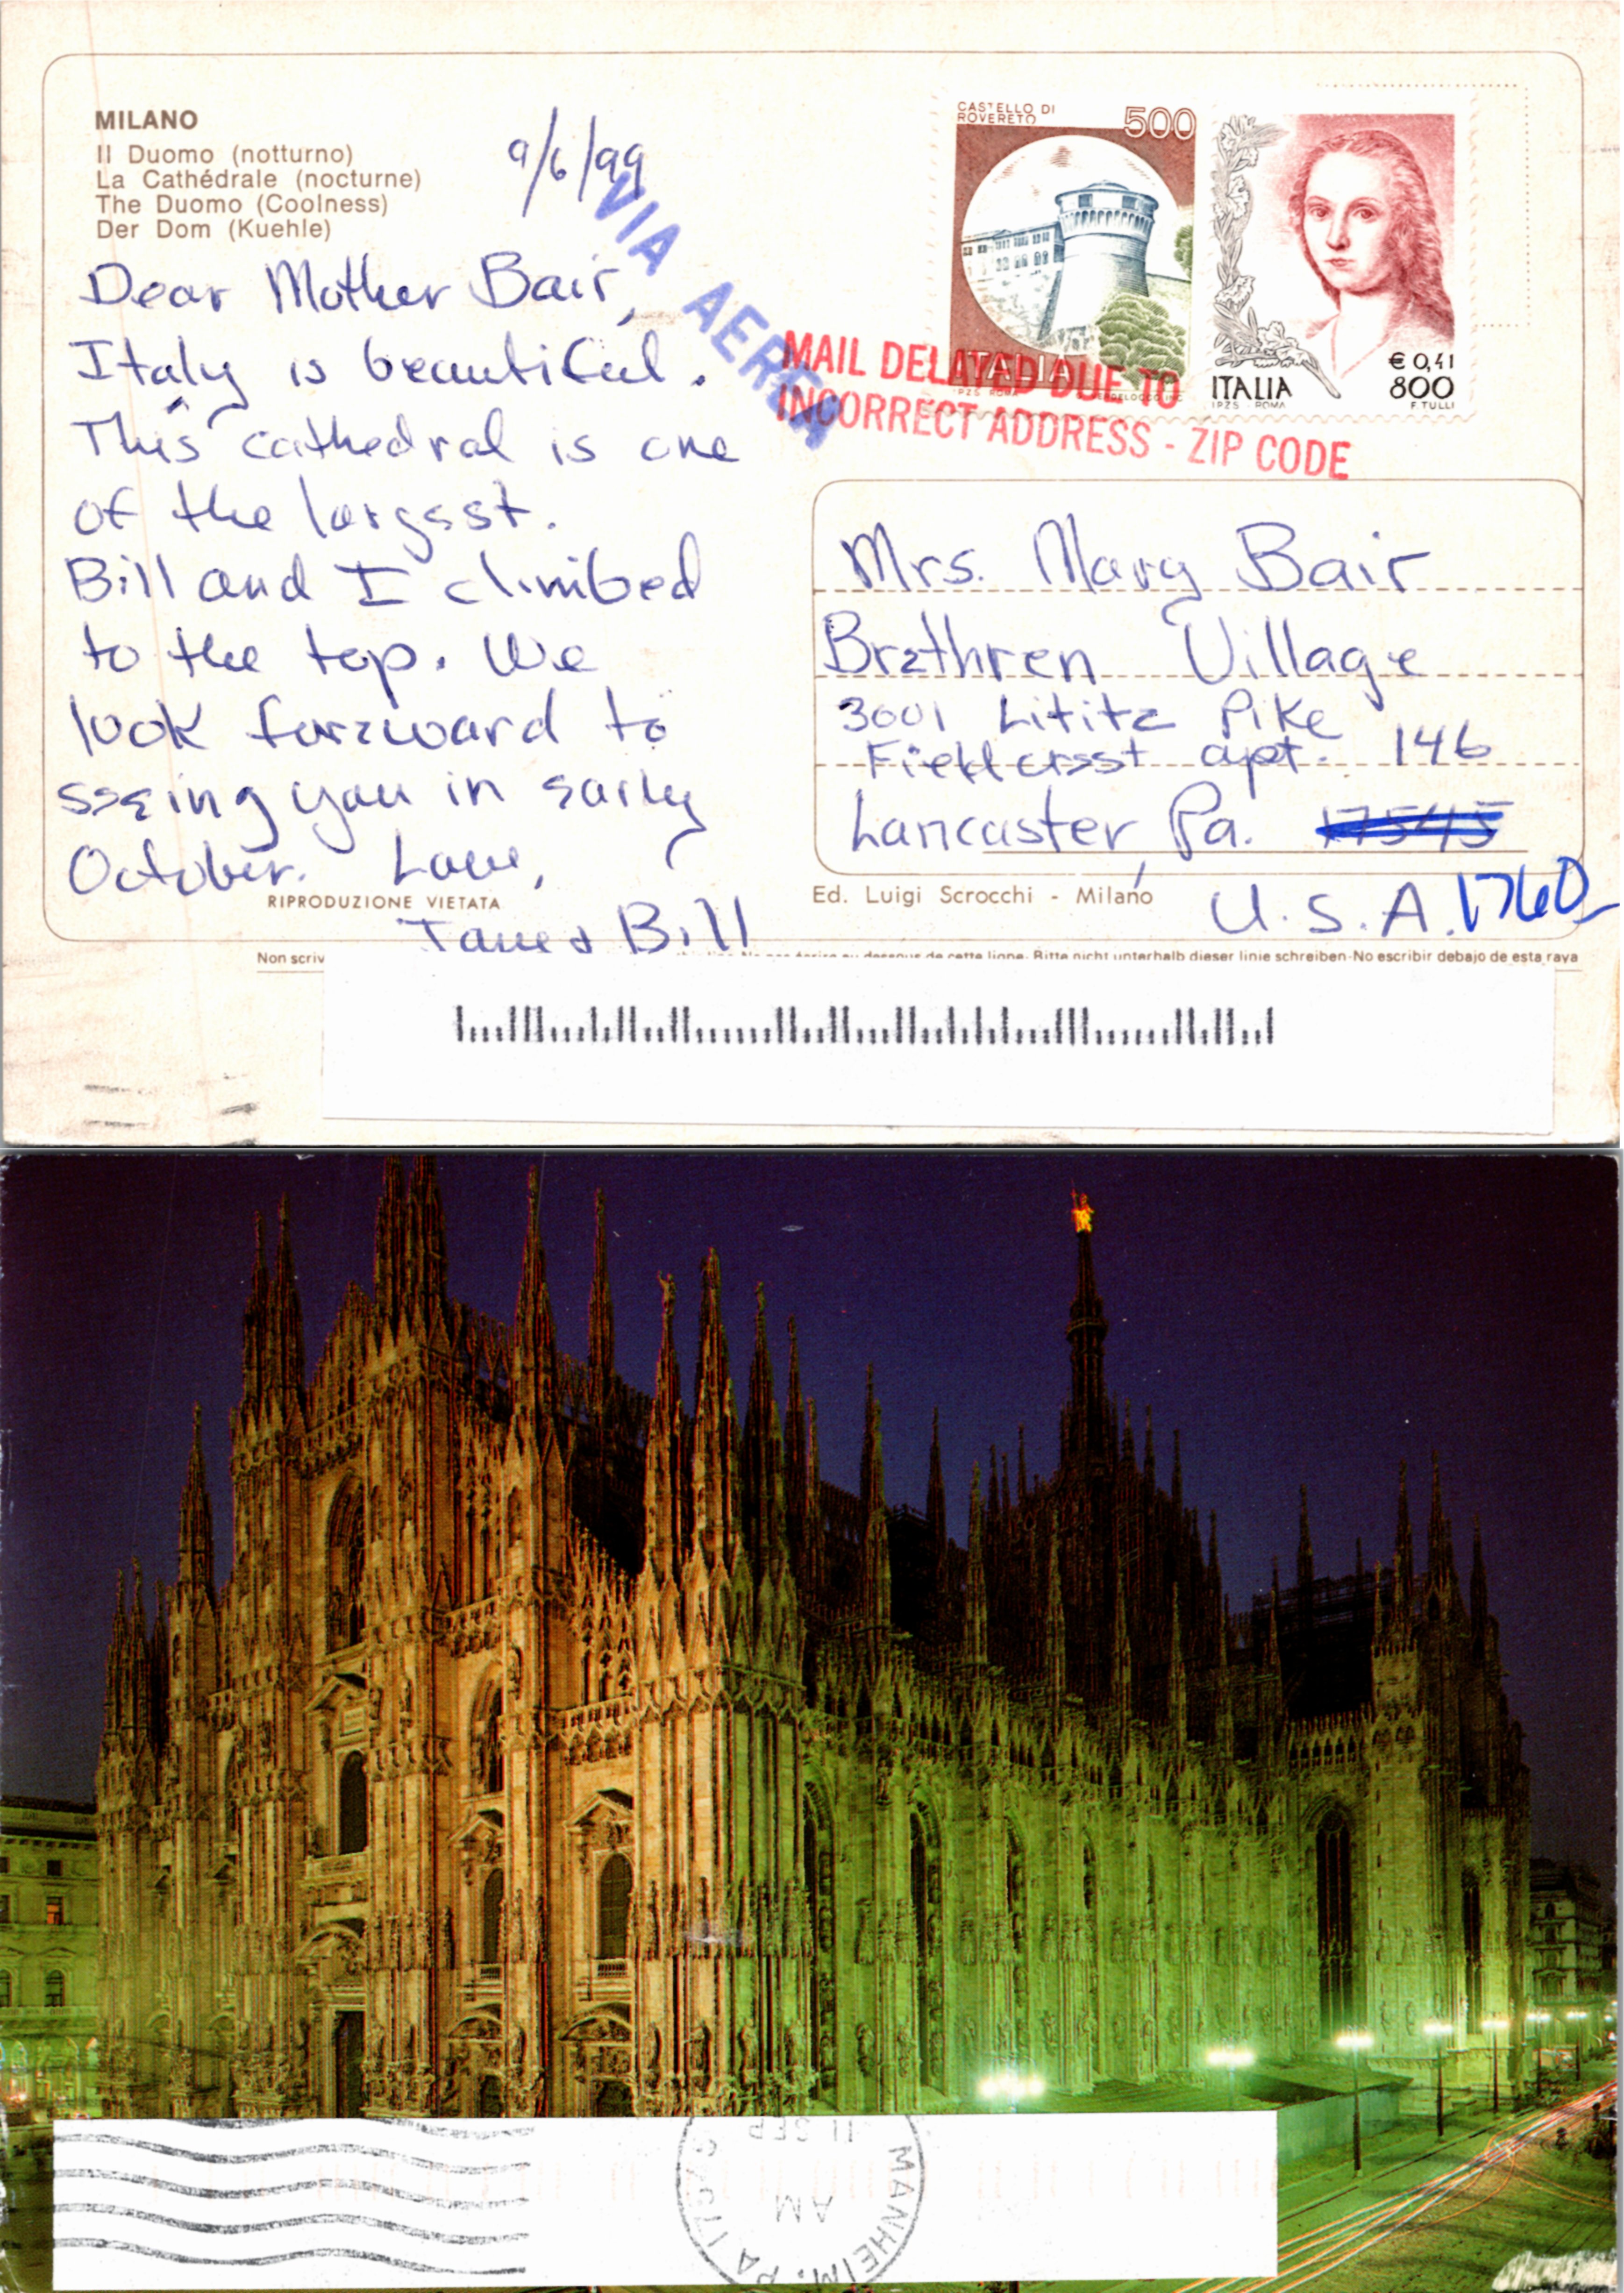 MILANO
Il Duomo (notturno)
La Cathédrale (nocturne)
The Duomo (Coolness)
Der Dom (Kuehle)
9/6/99
VIA AEREA
Dear Mother Bair,
Italy is beautiful.
This cathedral is one
of the largest.
Bill and I climbed
to the top. We
look forward to
seeing you in early
October. Love,
Bill
RIPRODUZIONE VIETATA
CASTELLO DI
ROVERETO
500
ITALIA
I.P.Z.S. ROMA
€ 0,41
ITALIA 800
I.P.Z.S. - ROMA F. TULLI
MAIL DELAYED DUE TO
INCORRECT ADDRESS - ZIP CODE
Mrs. Mary Bair
Brethren Village
3001 Lititz Pike
Fieldcrest apt. 146
Lancaster, Pa. 17545
U.S.A. 1760
Ed. Luigi Scrocchi - Milano
Non scriv
de cette ligne - Bitte nicht unterhalb dieser linie schreiben - No escribir debajo de esta raya
MANHEIM, PA
11 SEP
AM